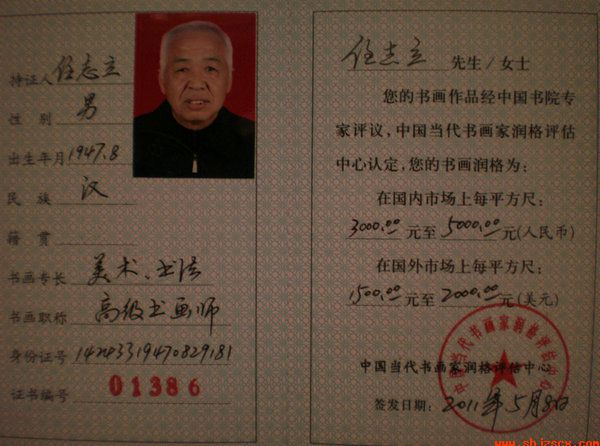 持证人 任志立
性 别 男
出生年月 1947.8
民 族 汉
籍 贯
书画专长 美术、书法
书画职称 高级书画师
身份证号 14243319470829181
证书编号 01386
任志立 先生/女士
您的书画作品经中国书院专
家评议，中国当代书画家润格评估
中心认定，您的书画润格为：
在国内市场上每平方尺：
3000.00 元至 5000.00 元(人民币)
在国外市场上每平方尺：
1500.00 元至 2000.00 元(美元)
中国当代书画家润格评估中心
中国当代书画家润格评估中心
签发日期：2011年5月8日
www.sbjzscx.com